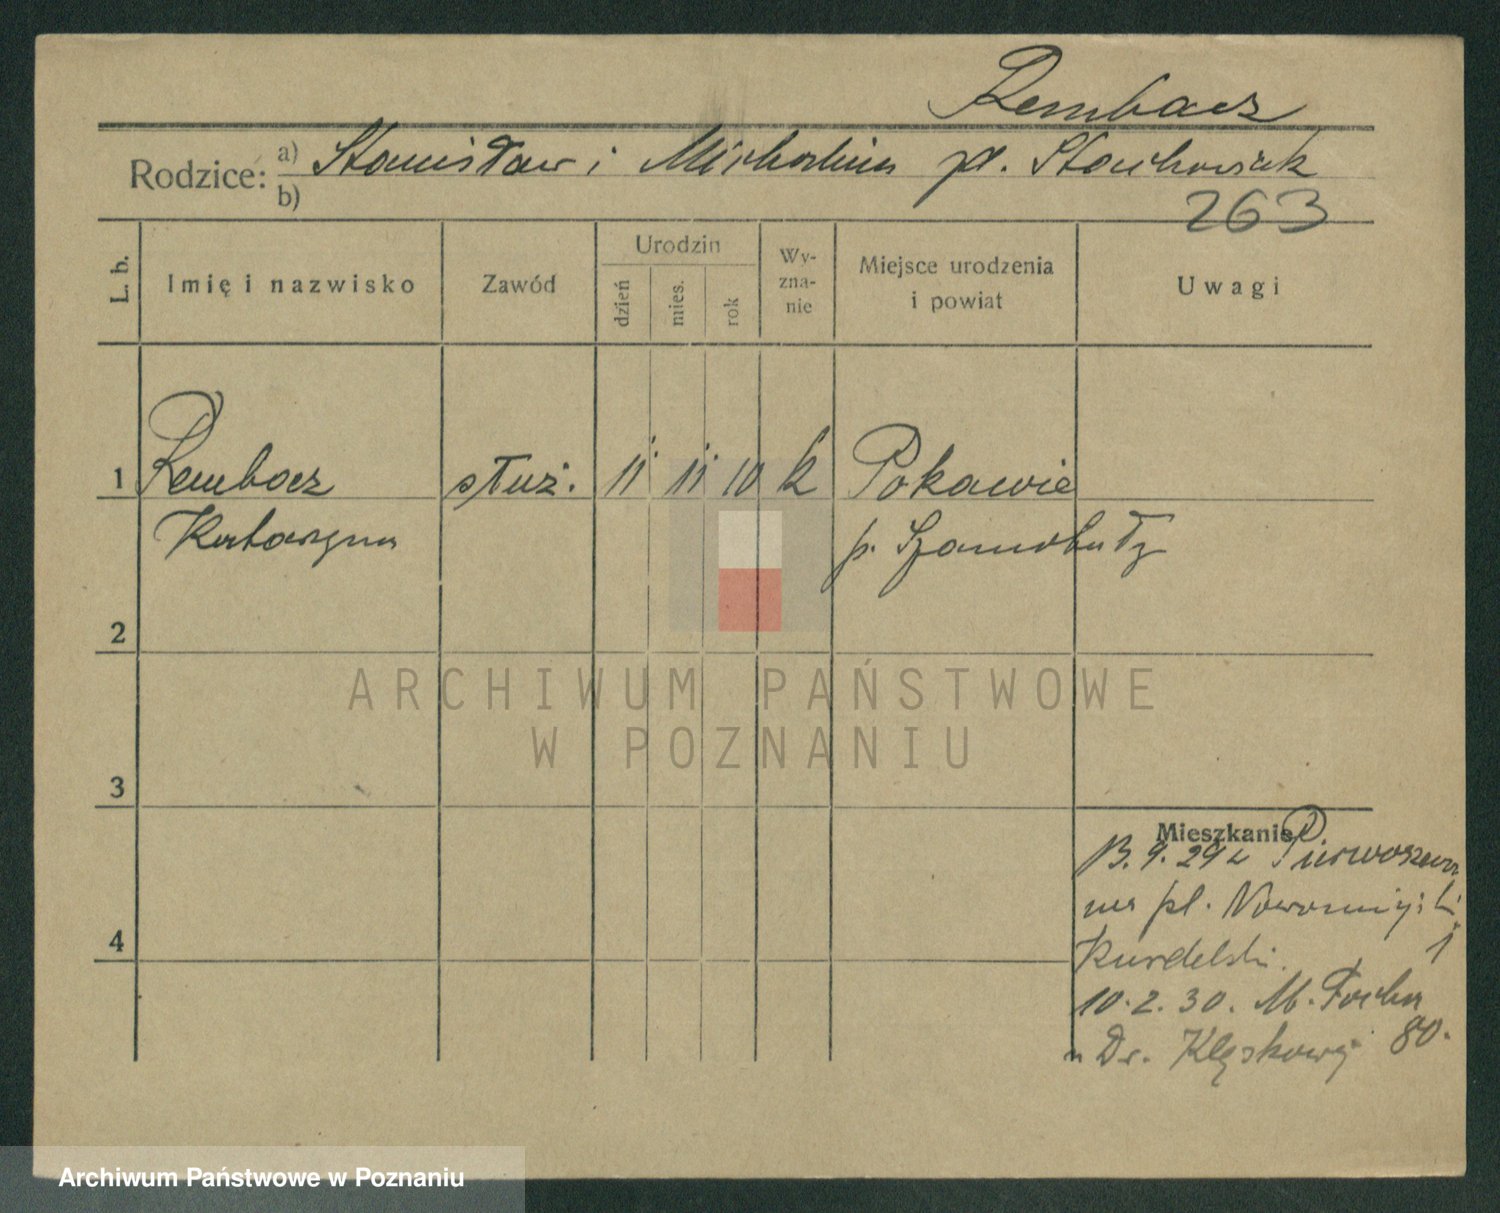 Rembacz
Rodzice: a) Stanisław i Michalina pł. Stachowiak
b)
263
L. b.
Imię i nazwisko
Zawód
Urodzin
dzień
mies.
rok
Wy-
zna-
nie
Miejsce urodzenia
i powiat
Uwagi
1 Rembacz służ. 11 11 10 k Pokawie
Katarzyna p. Szamotuły
2
ARCHIWUM PAŃSTWOWE
W POZNANIU
3
Mieszkanie
13.9.29 z Pierwoszewa
na pl. Nowomiejski
Kurdelski. 1
10.2.30. M. Focha
u Dr. Klęskowej 80.
4
Archiwum Państwowe w Poznaniu